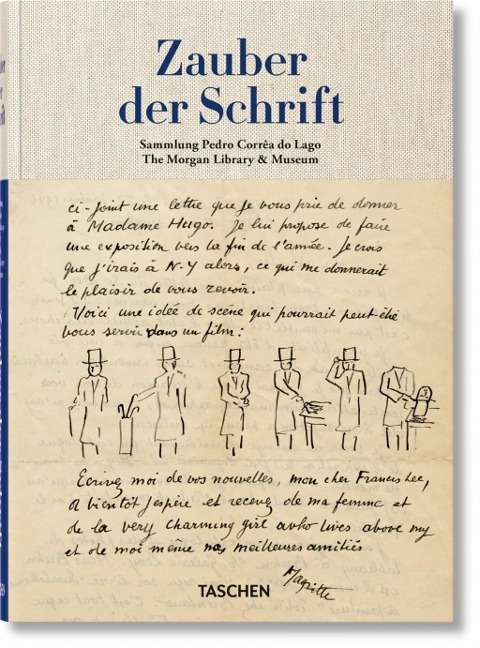 Zauber
der Schrift
Sammlung Pedro Corrêa do Lago
The Morgan Library & Museum
ci-joint une lettre que je vous prie de donner
à Madame Hugo. Je lui propose de faire
une exposition vers la fin de l'année. Je crois
que j'irais à N.Y alors, ce qui me donnerait
le plaisir de vous revoir.
Voici une idée de scène qui pourrait peut-être
vous servir dans un film :
Ecrivez moi de vos nouvelles, mon cher Francis Lee,
à bientôt j'espère et recevez de ma femme et
de la very charming girl who lives above my
et de moi même nos meilleures amitiés
Magritte
TASCHEN